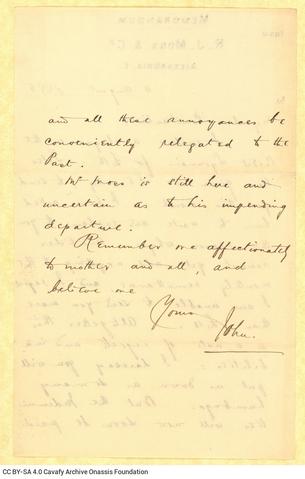 and all these annoyances be
conveniently relegated to the
Past.
Mr Moss is still here and
uncertain as to his impending
departure.
Remember me affectionately
to mother and all, and
believe me
Yours
John.
CC BY-SA 4.0 Cavafy Archive Onassis Foundation